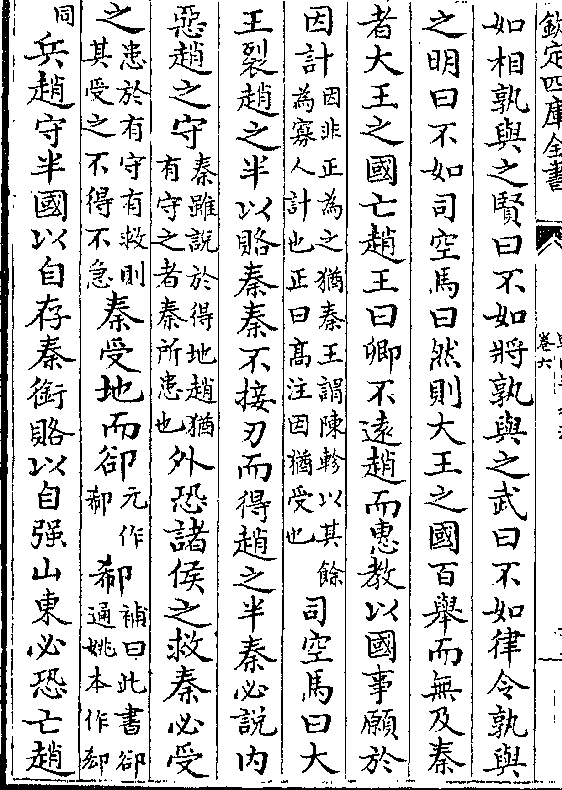 欽定四庫全書
卷六
如相孰與之賢曰不如將孰與之武曰不如律令孰與
之明曰不如司空馬曰然則大王之國百舉而無及秦
者大王之國亡趙王曰卿不逺趙而惠教以國事願於
因計因非正為之猶秦王謂陳軫以其餘為寡人計也正曰髙注因猶受也司空馬曰大
王裂趙之半以賂秦秦不接刃而得趙之半秦必説内
惡趙之守秦雖説於得地趙猶有守之者秦所患也外恐諸侯之救秦必受
之患於有守有救則其受之不得不急秦受地而郤元作郗郗補曰此書郤通姚本作郄
同兵趙守半國以自存秦銜賂以自强山東必恐亡趙